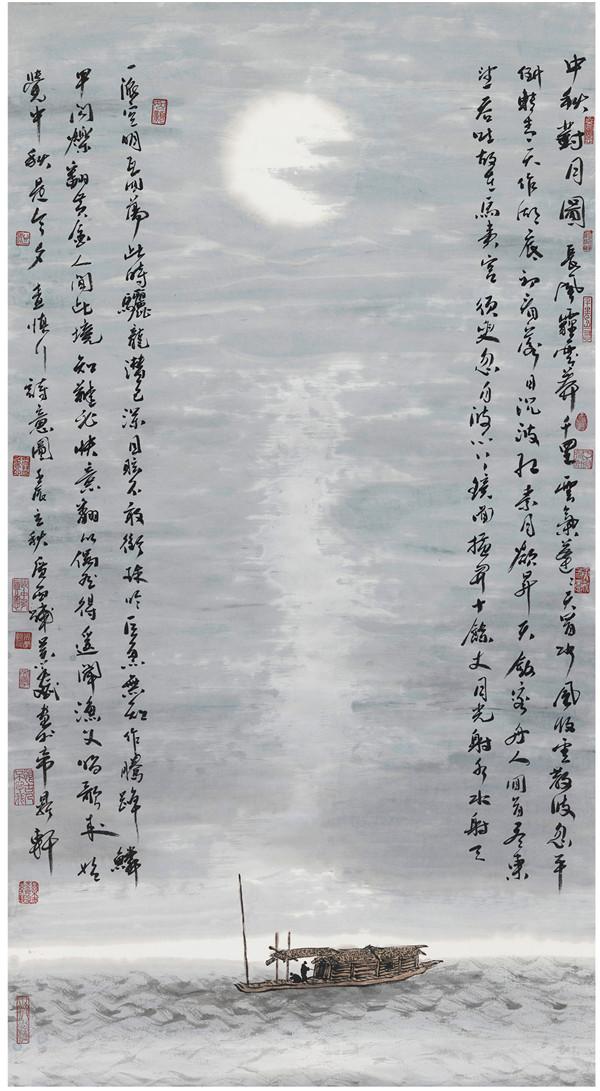 中秋對月圖 長風霾雲莽千里 雲氣蓬〻天冒水 風收雲散波忽平
倒轉青天作湖底 初看落日沉波紅 素月欲昇天斂容 舟人回首盡東
望 吞吐故在馮夷宮 須臾忽自波心上 鏡面橫開十餘丈 月光射水水射天
一派空明互回蕩 此時驪龍潛已深 目眩不敢銜珠吟 巨魚無知作騰踔 鱗
甲閃爍翻黃金 人間此境知難必 快意翻從偶然得 遙聞漁父唱歌來 始
覺中秋是今夕 查慎行詩意圖 壬辰立秋 畫於帝景軒